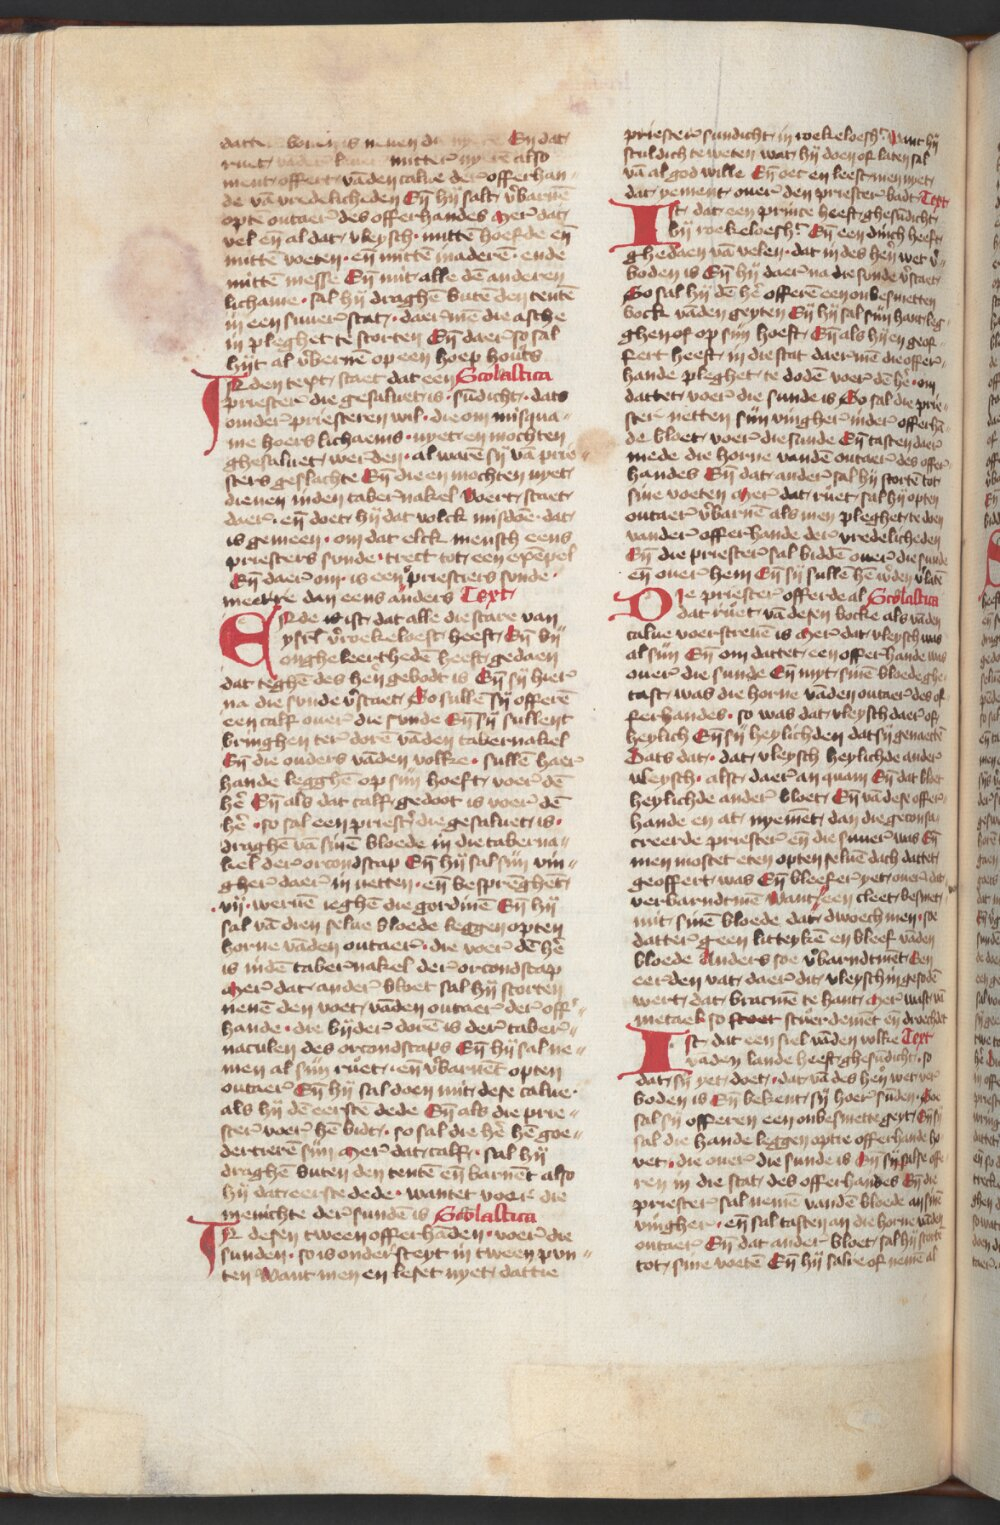 datte bouen is neuen die nyere Eñ dat
ruet mitter nyere also
ment offert vādencalue der offerhan
de vā vredelicheden Eñ hij salt v̉barnē
opte outaer des offerhandes Mer dat
vel eñ al dat vleysch · mittē hoefde eñ
mittē voeten · eñ mittē inaderē · ende
mittē messe Eñ mit alle dē anderen
lichame · sal hij draghē buten den tentē
in een suuer stat · daer mē die assche
in pleghet te storten Eñ daer so sal
hijt al v̉bernē op een hoep houts
IN den text staet dat een Scolastica
priester die gesaluet is · sūdicht · dats
omder priesteren wil · die om misqua
me hoers lichaems · nyet en mochten
ghesaluet werden · al warē sij vā prie
sters geslachte Eñ die en mochten nyet
dienen inden tabernakel Voert staet
daer · eñ doet hij dat volck misdoē · dat
is gemeen · om dat elck mensch eens
priesters sunde · trect tot een exēpel
Eñ daer om · is een priesters sunde
meerre dan eens anders Text
Ende ist dat alle die scare van
ysrl̄ v̉roekeloest heeft Eñ bij
onghekeerthedē heeft gedaen
dat teghē des herē gebodt is Eñ sij hier
na die sunde v̉staet So sullē sij offerē
een calf ouer die sunde Eñ sij sullent
bringhen ter dorē vāden tabernakel
Eñ die ouders vāden volke · sullē haer
hande legghē op sijn hoeft voer dē
hē̉ Eñ als dat calf gedoot is voer dē
hē̉ · so sal een priest̉ die gesaluet is ·
draghē vā sinē bloede in die taberna
kel der orcondscap Eñ hij sal sijn vin
gher daer in netten · eñ besprēghēt
· vij · weruē ieghē die gordinē Eñ hij
sal vā dien selue bloede leggen opten
horne vāden outaer · die voer dē hē̉
is indē tabernakel der orcondscap
Mer dat ander bloet sal hij storten
neuē den voet vāden outaer der off̉
hande · die bijder dorē is der taber
naculen des orcondscaps Eñ hij sal ne
men al sijn ruet · eñ v̉barnēt opten
outaer Eñ hij sal doen mit dese calue ·
als hij dē eerste dede Eñ als die prie
ster voer hē bidt · so sal die hē̉ hē goe
dertierē sijn Mer dat calf · sal hij
draghē buten den tentē eñ barnēt also
hij dat eerste dede · wantet voer die
menichte der sundē is Scolastica
IN desen tween offerhāden · voer die
sunden · so is onder steyt in tween pun
ten Want men en leset nyet dat die
priester sundicht in roekeloesh̉ Want hij
sculdich te weten wat hij doen of laten sal
vā al god wille Eñ oec en leestmen nyet
dat yement ouer den priester badt Text
Ist dat een prince heeft ghesūdicht
bij roekeloesh̉ Eñ een dinch heeft
ghedaen vā velen · dat in des herē wet v̉
boden is Eñ hij daer na die sunde v̉staet
So sal hij dē hē̉ offerē een onbesmetten
bock vāden geyten Eñ hij sal sijn hant leg
ghen of op sijn hoeft Eñ als hijen geof
fert heeft in die stat daermē die offer
hande pleghet te dodē voer dē hē̉ · om
dattet voer die sunde is So sal die prie
ster netten sijn vingher inder offerhā
de bloet voer die sunde Eñ tasten daer
mede die horne vandē outaer des offer
handes Eñ dat ander sal hij stortē tot
sine voeten Mer dat ruet sal hij opten
outaer v̉barnē als men pleghet te doen
vander offerhande der vredelicheden
Eñ die priester sal biddē ouer die sunde
eñ ouer hem Eñ sij sullē hē w̉den v̉latē
Die priester offerde al Scolastica
dat ruet vā desen bocke als vāden
calue voerscreuē is Mer dat vleysch was
al sijn Eñ om dattet een offerhande was
ouer die sunde Eñ myt sinē bloede ghe
tast was die horne vāden outaer des of
ferhandes · so was dat vleysch daer of
heylich Eñ sij heylichden dat sij genaectē
Dats dat · dat vleysch heylichde ander
vleysch · alst daer an quam Eñ dat bloet
heylichde ander bloet Eñ vā dese offer
hande en at nyemēt dan die geconsa
creerde priester eñ die suuer was Eñ
men mostet eten opten seluē dach dattet
geoffert was Eñ bleefer yet ouer dat
verbarndtmē Want een cleet besmet
mit sinē bloede dat dwoechmen · soe
datter geen litteykē en bleef vāden
bloede Anders soe v̉barndtmēt Een
eerden vat daer dit vleysch in gesodē
wert dat bracmē te hant Mer wast vā
metael so stuerdemēt eñ droechdet
Ist dat een siel vāden volke Text
vāden lande heeft ghesūdicht · so
dat sij yet doet · dat vā des herē wet ver
boden is Eñ bekent sij hoer sūden · Soe
sal sij offeren een onbesmette geyt Eñ sij
sal die hande leggen optie offerhande ho
uet · die ouer die sunde is Eñ sij salse offe
ren in die stat des offerhandes Eñ die
priester sal nemē vandē bloede an sinē
vingher · eñ sal tasten an die horne vāden
outaer Eñ dat ander bloet sal hij storte
tot sine voetē Eñ hij salre of nemē al